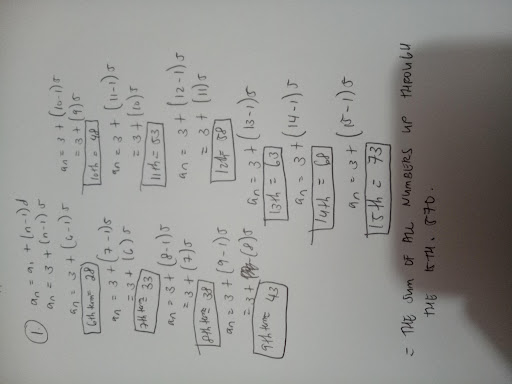 ①
an = a1 + (n-1)d
an = 3 + (n-1)5
an = 3 + (6-1)5
6th term = 28
an = 3 + (7-1)5
= 3 + (6)5
7th term = 33
an = 3 + (8-1)5
= 3 + (7)5
8th term = 38
an = 3 + (9-1)5
= 3 + (8)5
9th term = 43
an = 3 + (10-1)5
= 3 + (9)5
10th = 48
an = 3 + (11-1)5
= 3 + (10)5
11th = 53
an = 3 + (12-1)5
= 3 + (11)5
12th = 58
an = 3 + (13-1)5
13th = 63
an = 3 + (14-1)5
14th = 68
an = 3 + (15-1)5
15th = 73
= THE SUM OF ALL NUMBERS UP THROUGH
THE 15TH. 570.